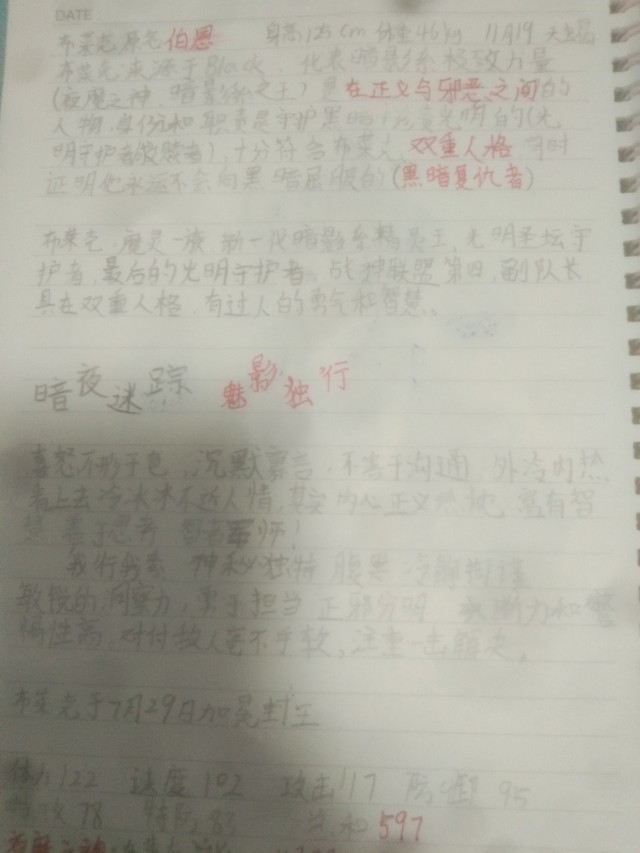 DATE:
布莱克 原名 伯恩 身高125cm 体重46kg 11月19 天蝎
布莱克 来源于Black, 代表暗影系极致力量
(夜魔之神, 暗影系之王) 是在正义与邪恶之间的
人物, 身份和职责是守护黑暗 光明的(光
明守护者 ) 十分符合布莱克 双重人格 同时
证明他永远不会向黑暗屈服的(黑暗复仇者)
布莱克, 魔灵一族 新一代暗影系精灵王, 光明圣坛守
护者, 最后的光明守护者, 战神联盟第四, 副队长
具在双重人格, 有过人的勇气和智慧。
暗夜迷踪 魅影独行
喜怒不形于色, 沉默寡言, 不善于沟通 外冷内热
看上去冷冰冰不近人情, 其实内心正义 富有智
慧 善于思考 智者军师!
我行我素 神秘独特 腹黑 冷静拘谨
敏锐的洞察力, 勇于担当 正邪分明 力和警
惕性高, 对付敌人毫不手软。注重一击 。
布莱克于7月29日加冕封王
体力122 速度102 攻击117 防御 95
特攻 78 特防 83 总和 597
夜魔之神